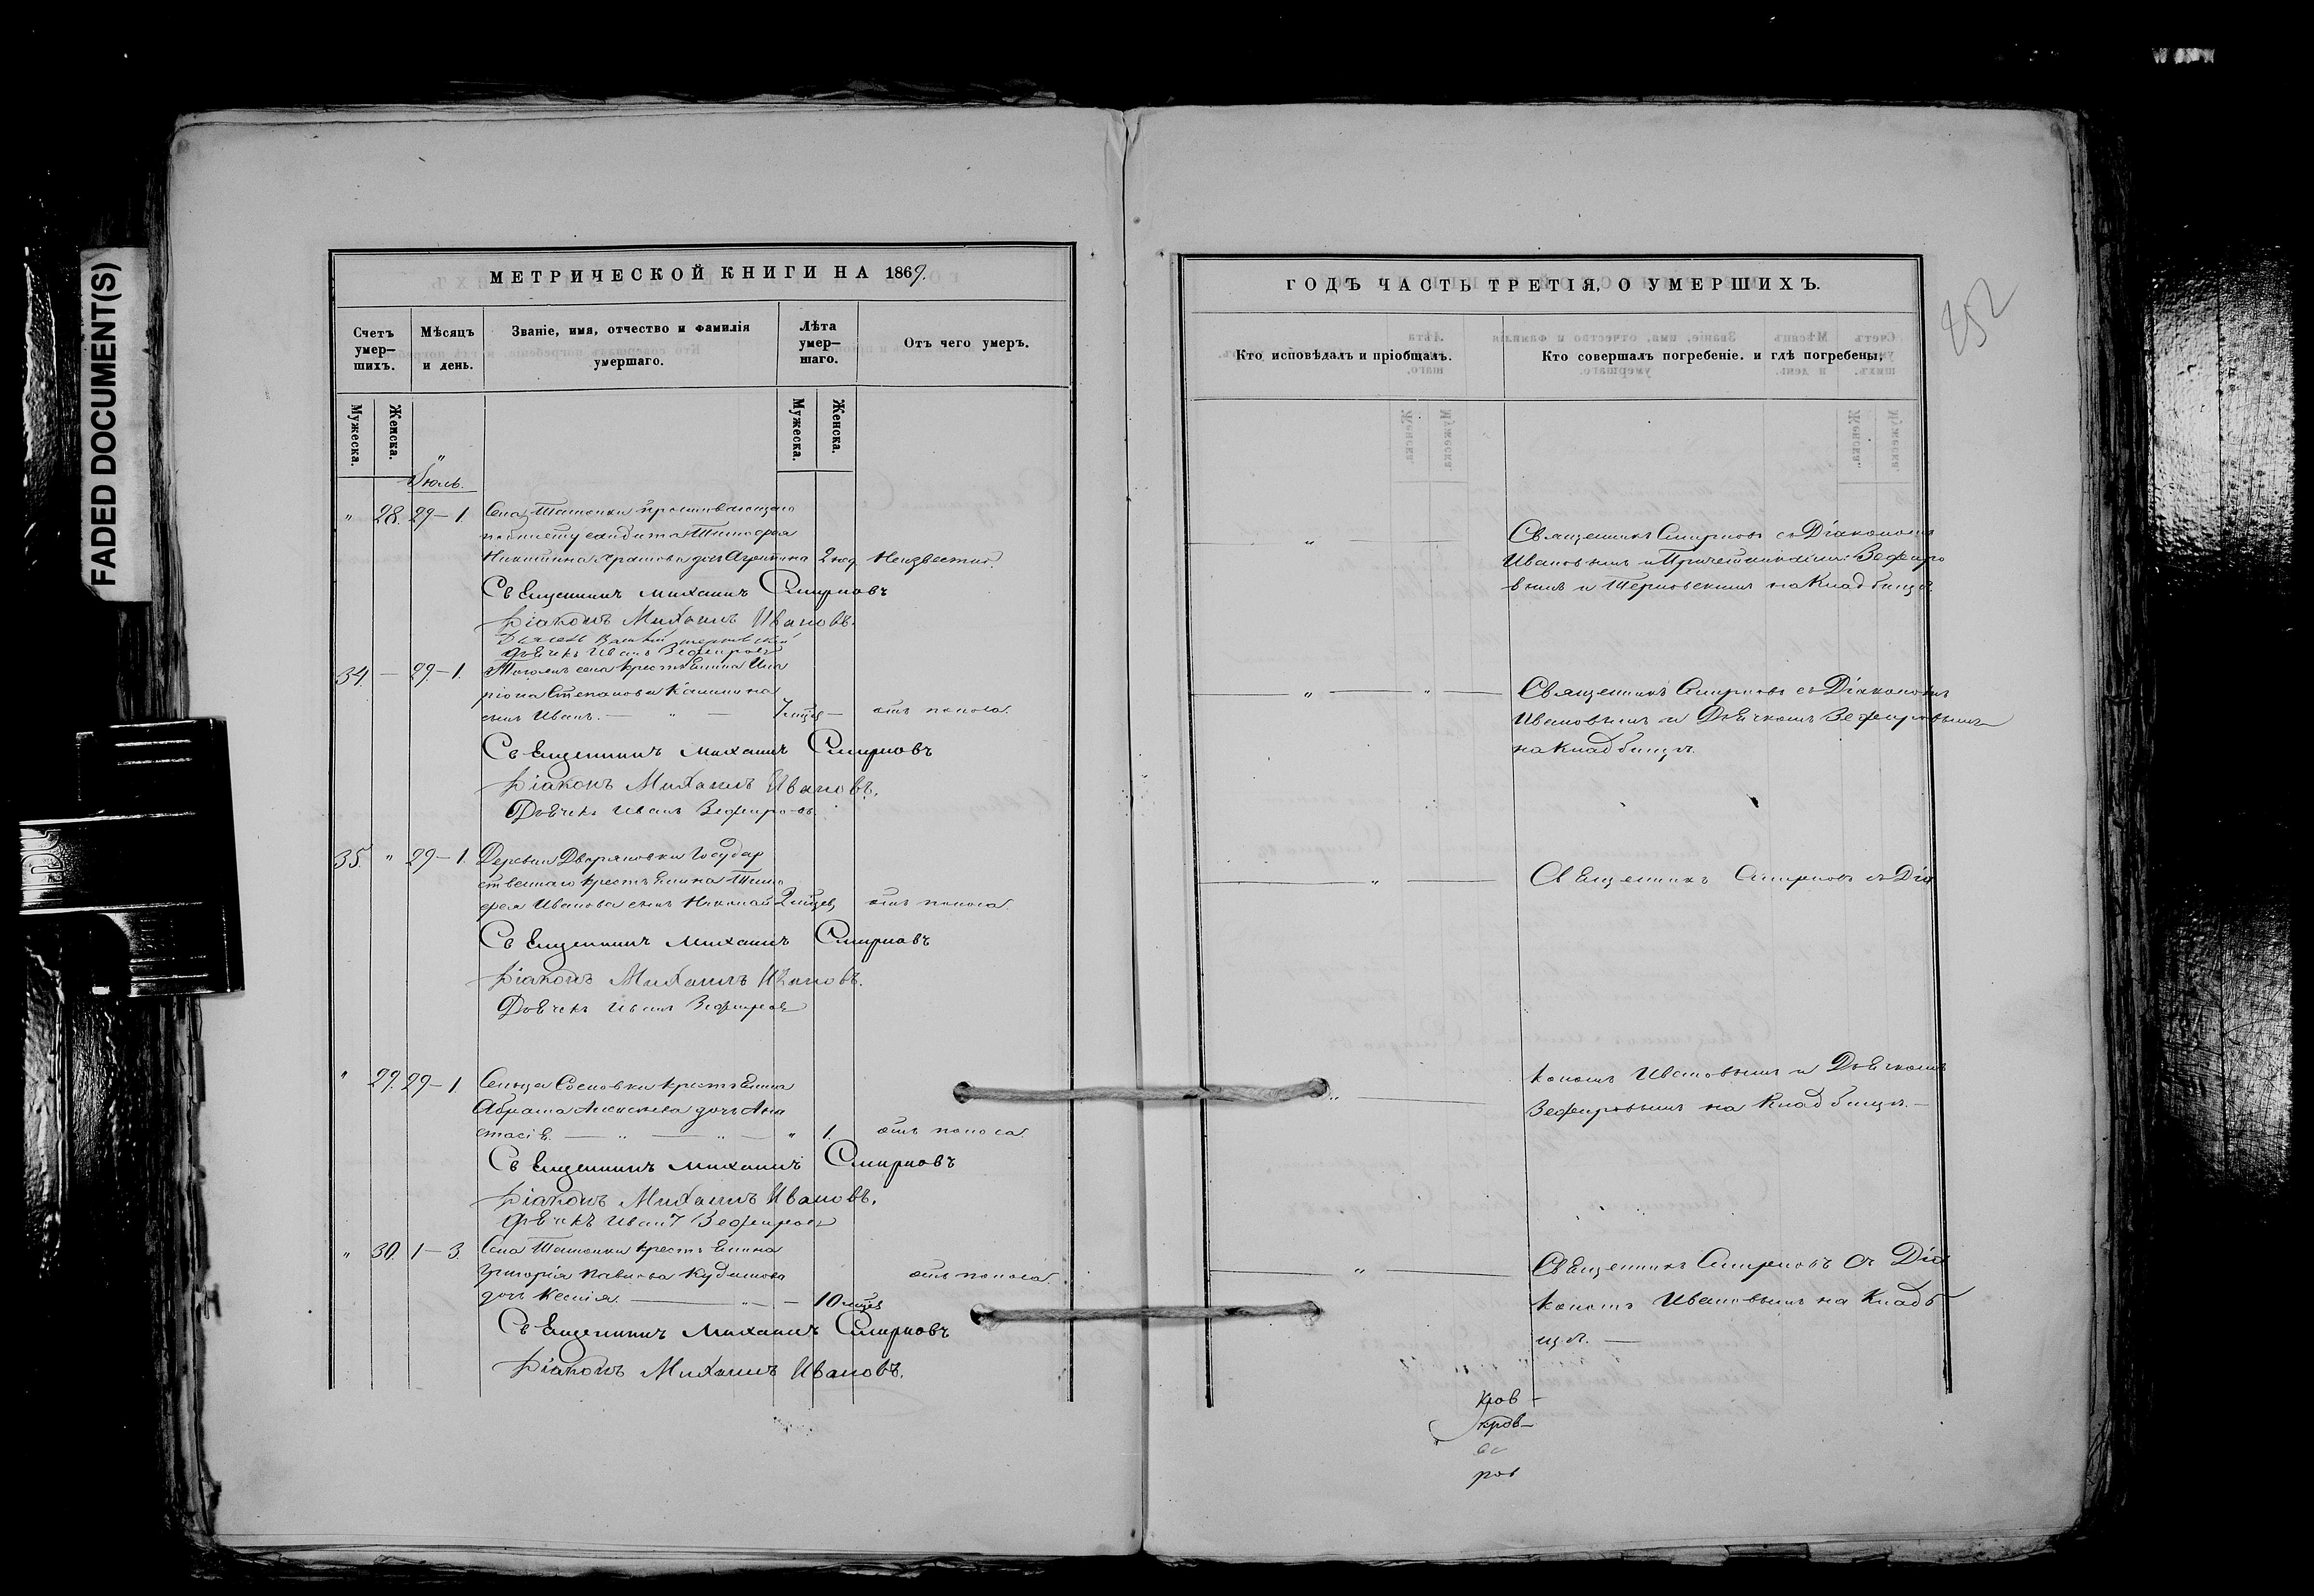 FADED DOCUMENT(S)
МЕТРИЧЕСКОЙ КНИГИ НА 1869.
Счетъ умер-шихъ.
Мѣсяцъ и день.
Званіе, имя, отчество и фамилія умершаго.
Лѣта умер-шаго.
Отъ чего умеръ.
Мужеска.
Женска.
Мужеска.
Женска.
Іюль.
" 28. 29–1. Села
Никитина дочь 2 год. Неизвестно.
Священникъ Михаилъ Смирновъ
Діаконъ Михаилъ Ивановъ.
Дьячекъ Иванъ Зефировъ
34. — 29–1. Тогожъ села крестьянина Ила
ріона Степанова Калинина
сынъ Иванъ. — " — 7 мцев — отъ поноса.
Священникъ Михаилъ Смирновъ
Діаконъ Михаилъ Ивановъ.
Дьячекъ Иванъ Зефировъ.
35. " 29–1. Деревни Дворяновки Государ
ственнаго крестьянина Тимо
фея Иванова сынъ Николай 2 мцев отъ поноса
Священникъ Михаилъ Смирновъ
Діаконъ Михаилъ Ивановъ.
Дьячекъ Иванъ Зефировъ
" 29. 29–1 Сельца Сосновки крестьянина
Абрама Алексѣева дочь Ана
стасія. — " — " — " 1. отъ поноса.
Священникъ Михаилъ Смирновъ
Діаконъ Михаилъ Ивановъ.
Дьячекъ Иванъ Зефировъ
" 30. 1–3. Села крестьянина
Григорія Павлова отъ поноса.
дочь Ксенія. — " — 10 мцев
Священникъ Михаилъ Смирновъ
Діаконъ Михаилъ Ивановъ.
ГОДЪ ЧАСТЬ ТРЕТІЯ, О УМЕРШИХЪ.
252
Кто исповѣдалъ и пріобщалъ.
Кто совершалъ погребеніе. и гдѣ погребены,
— " — Священникъ Смирновъ съ Діакономъ
Ивановымъ и Причетниками: Зефиро
вымъ и на Кладбищѣ.
— " — " — Священникъ Смирновъ съ Діакономъ
Ивановымъ и Дьячкомъ Зефировымъ
на Кладбищѣ.
— " — Священникъ Смирновъ съ Діа
кономъ Ивановымъ и Дьячкомъ
" — Зефировымъ на Кладбищѣ. —
— " — Священникъ Смирновъ съ Діа
кономъ Ивановымъ на Кладб
ищѣ. —
кров –
кров–
ров